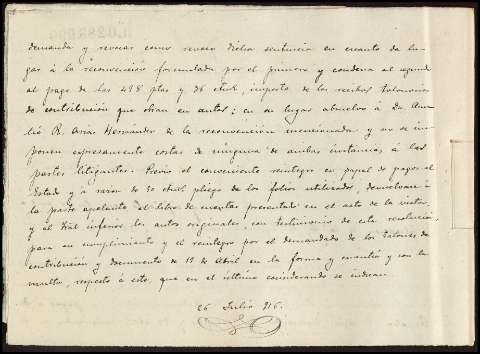 demanda y revocar como revoco dicha sentencia en cuanto da lu-
gar á la reconvención formulada por el primero y condena al segundo
al pago de las 498 ptas y 36 cts, importe de los recibos talonarios
de contribución que obran en autos; en su lugar absuelvo á Dn Aure-
lio R. Hernández de la reconvención mencionada y no se im-
ponen expresamente costas de ninguna de ambas instancias á las
partes litigantes. Previo el conveniente reintegro en papel de pagos al
Estado y á razon de pliego de los folios utilizados, devuelvase á
la parte apelante el libro de cuentas presentado en el acto de la vista,
y al Tbal inferior los autos originales, con testimonio de esta resolución,
para su cumplimiento y el reintegro por el demandado de los talones de
contribución y documento de 19 de Abril en la forma y cuantía y con la
multa, respecto á esto, que en el último considerando se indican.
26 Julio 916.